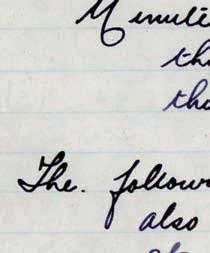 Minuti
th
the
The. follow
also